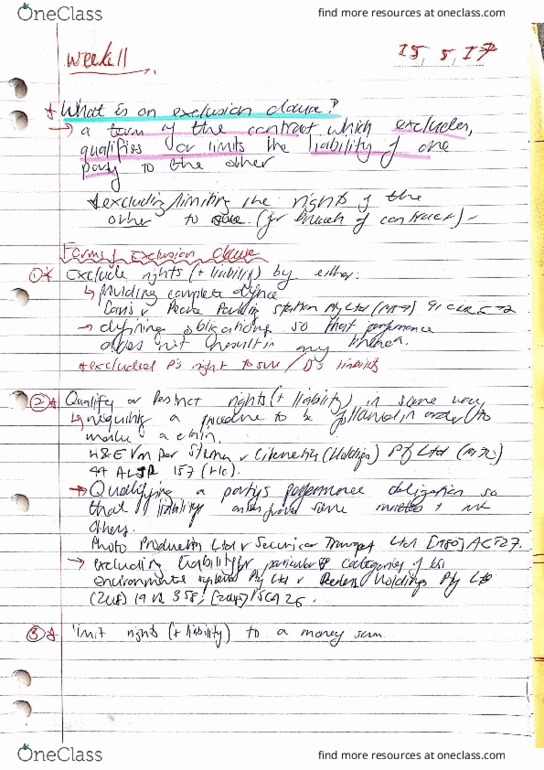 OneClass
find more resources at oneclass.com
Week 11
15, 5, 17
What is an exclusion clause?
→ a term of the contract which excludes,
qualifies or limits the liability of one
party to the other
* excluding/limiting the rights of the
other to sue. (for breach of contract)
Forms of Exclusion Clause
① * Exclude rights (+ liability) by either:
↳ Providing complete defence
Pty Ltd
→ defining obligations so that performance
does not result in any
* excludes P's right to sue / D's liability
② * Qualify or Restrict rights (+ liability) in some way
↳ requiring a procedure to be followed in order to
make a claim.
H & E Van Der Sterren v Cibernetics (Holdings) Pty Ltd
44 ALJR 157 (HC).
→ Qualifying a party's performance obligation so
that liability some matters + not
others.
Photo Production Ltd v Securicor Transport Ltd [1980] AC 827.
→ excluding liability for particular categories of
Environmental Systems Pty Ltd v Peerless Holdings Pty Ltd
(2008) 19 VR 358; VSCA 26.
③ * limit rights (+ liability) to a money sum.
OneClass
find more resources at oneclass.com